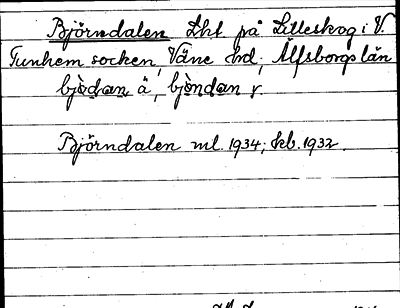 Björndalen Lht på Lilleskog i V.
Tunhem socken, Väne hd, Älfsborgs län
bjὸdan ä, bjὸndan y
Björndalen ml. 1934; kb. 1932.